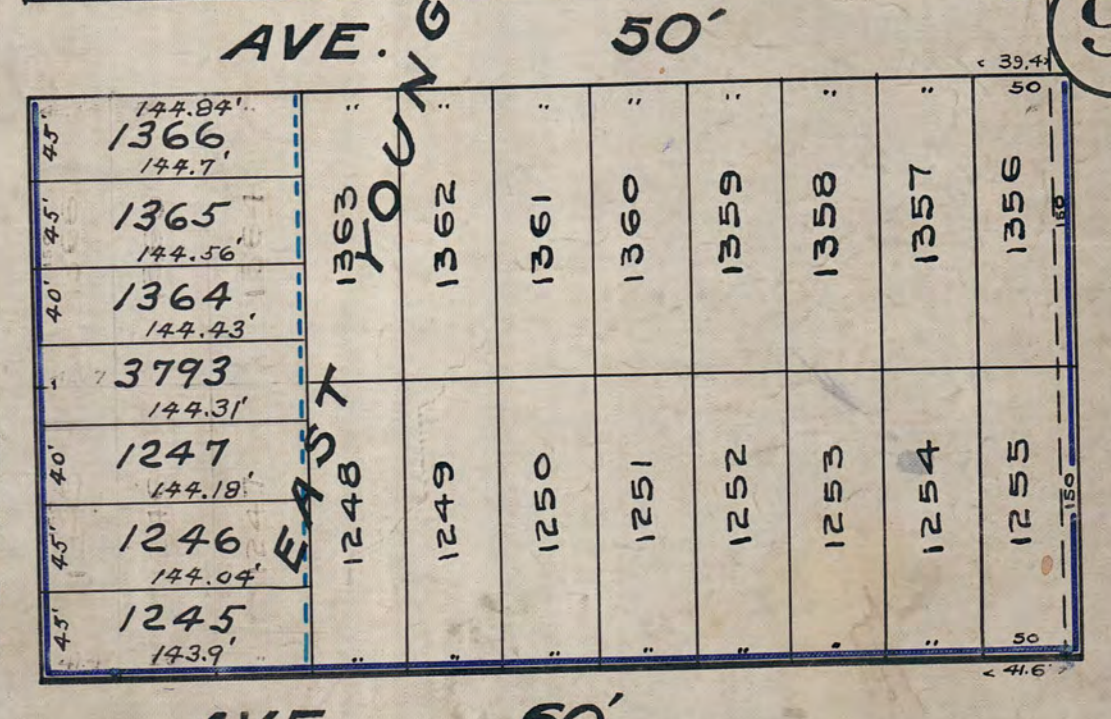 AVE. 50'
EAST YOUNG
< 39.4
50
144.84'
45' 1366
144.7'
45' 1365
144.56'
40' 1364
144.43'
3793
144.31'
40' 1247
144.18'
45' 1246
144.04'
45' 1245
143.9'
" " " " " " "
1363 1362 1361 1360 1359 1358 1357 1356
150
1248 1249 1250 1251 1252 1253 1254 1255
150
" " " " " " "
50
< 41.6' >
AVE 50'